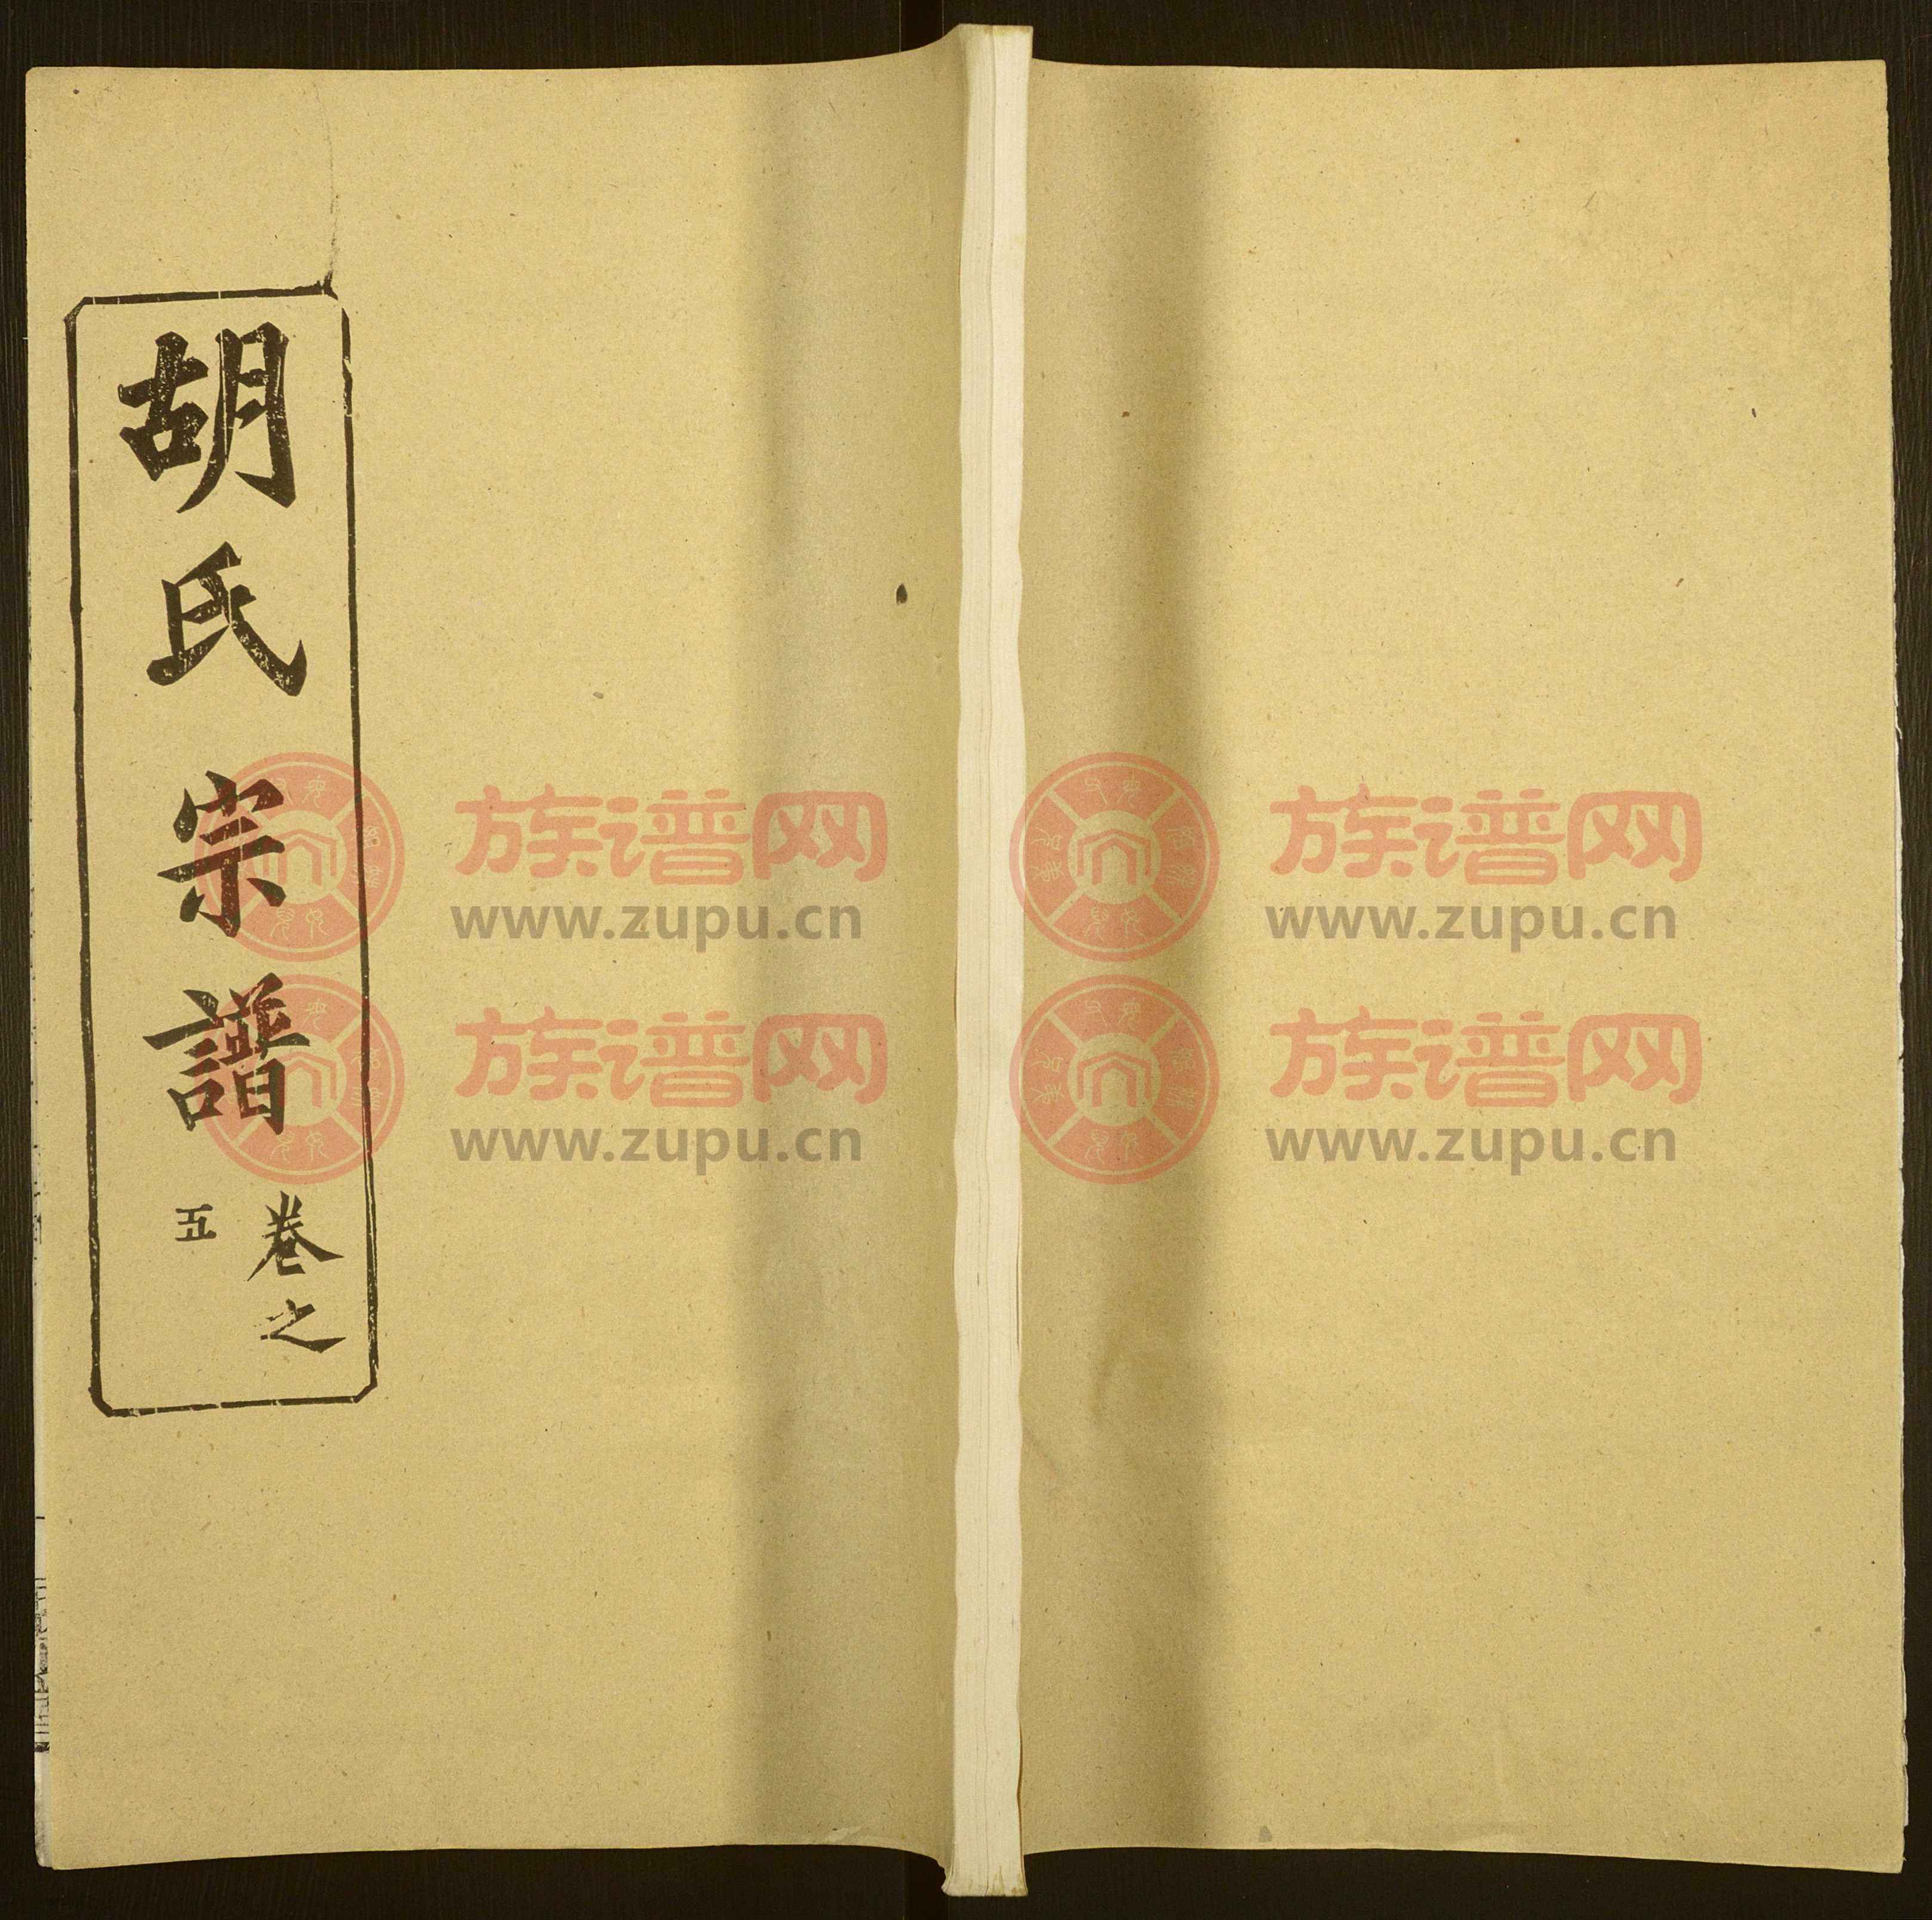 胡氏宗譜
卷之
五
族谱网
www.zupu.cn
族谱网
www.zupu.cn
族谱网
www.zupu.cn
族谱网
www.zupu.cn